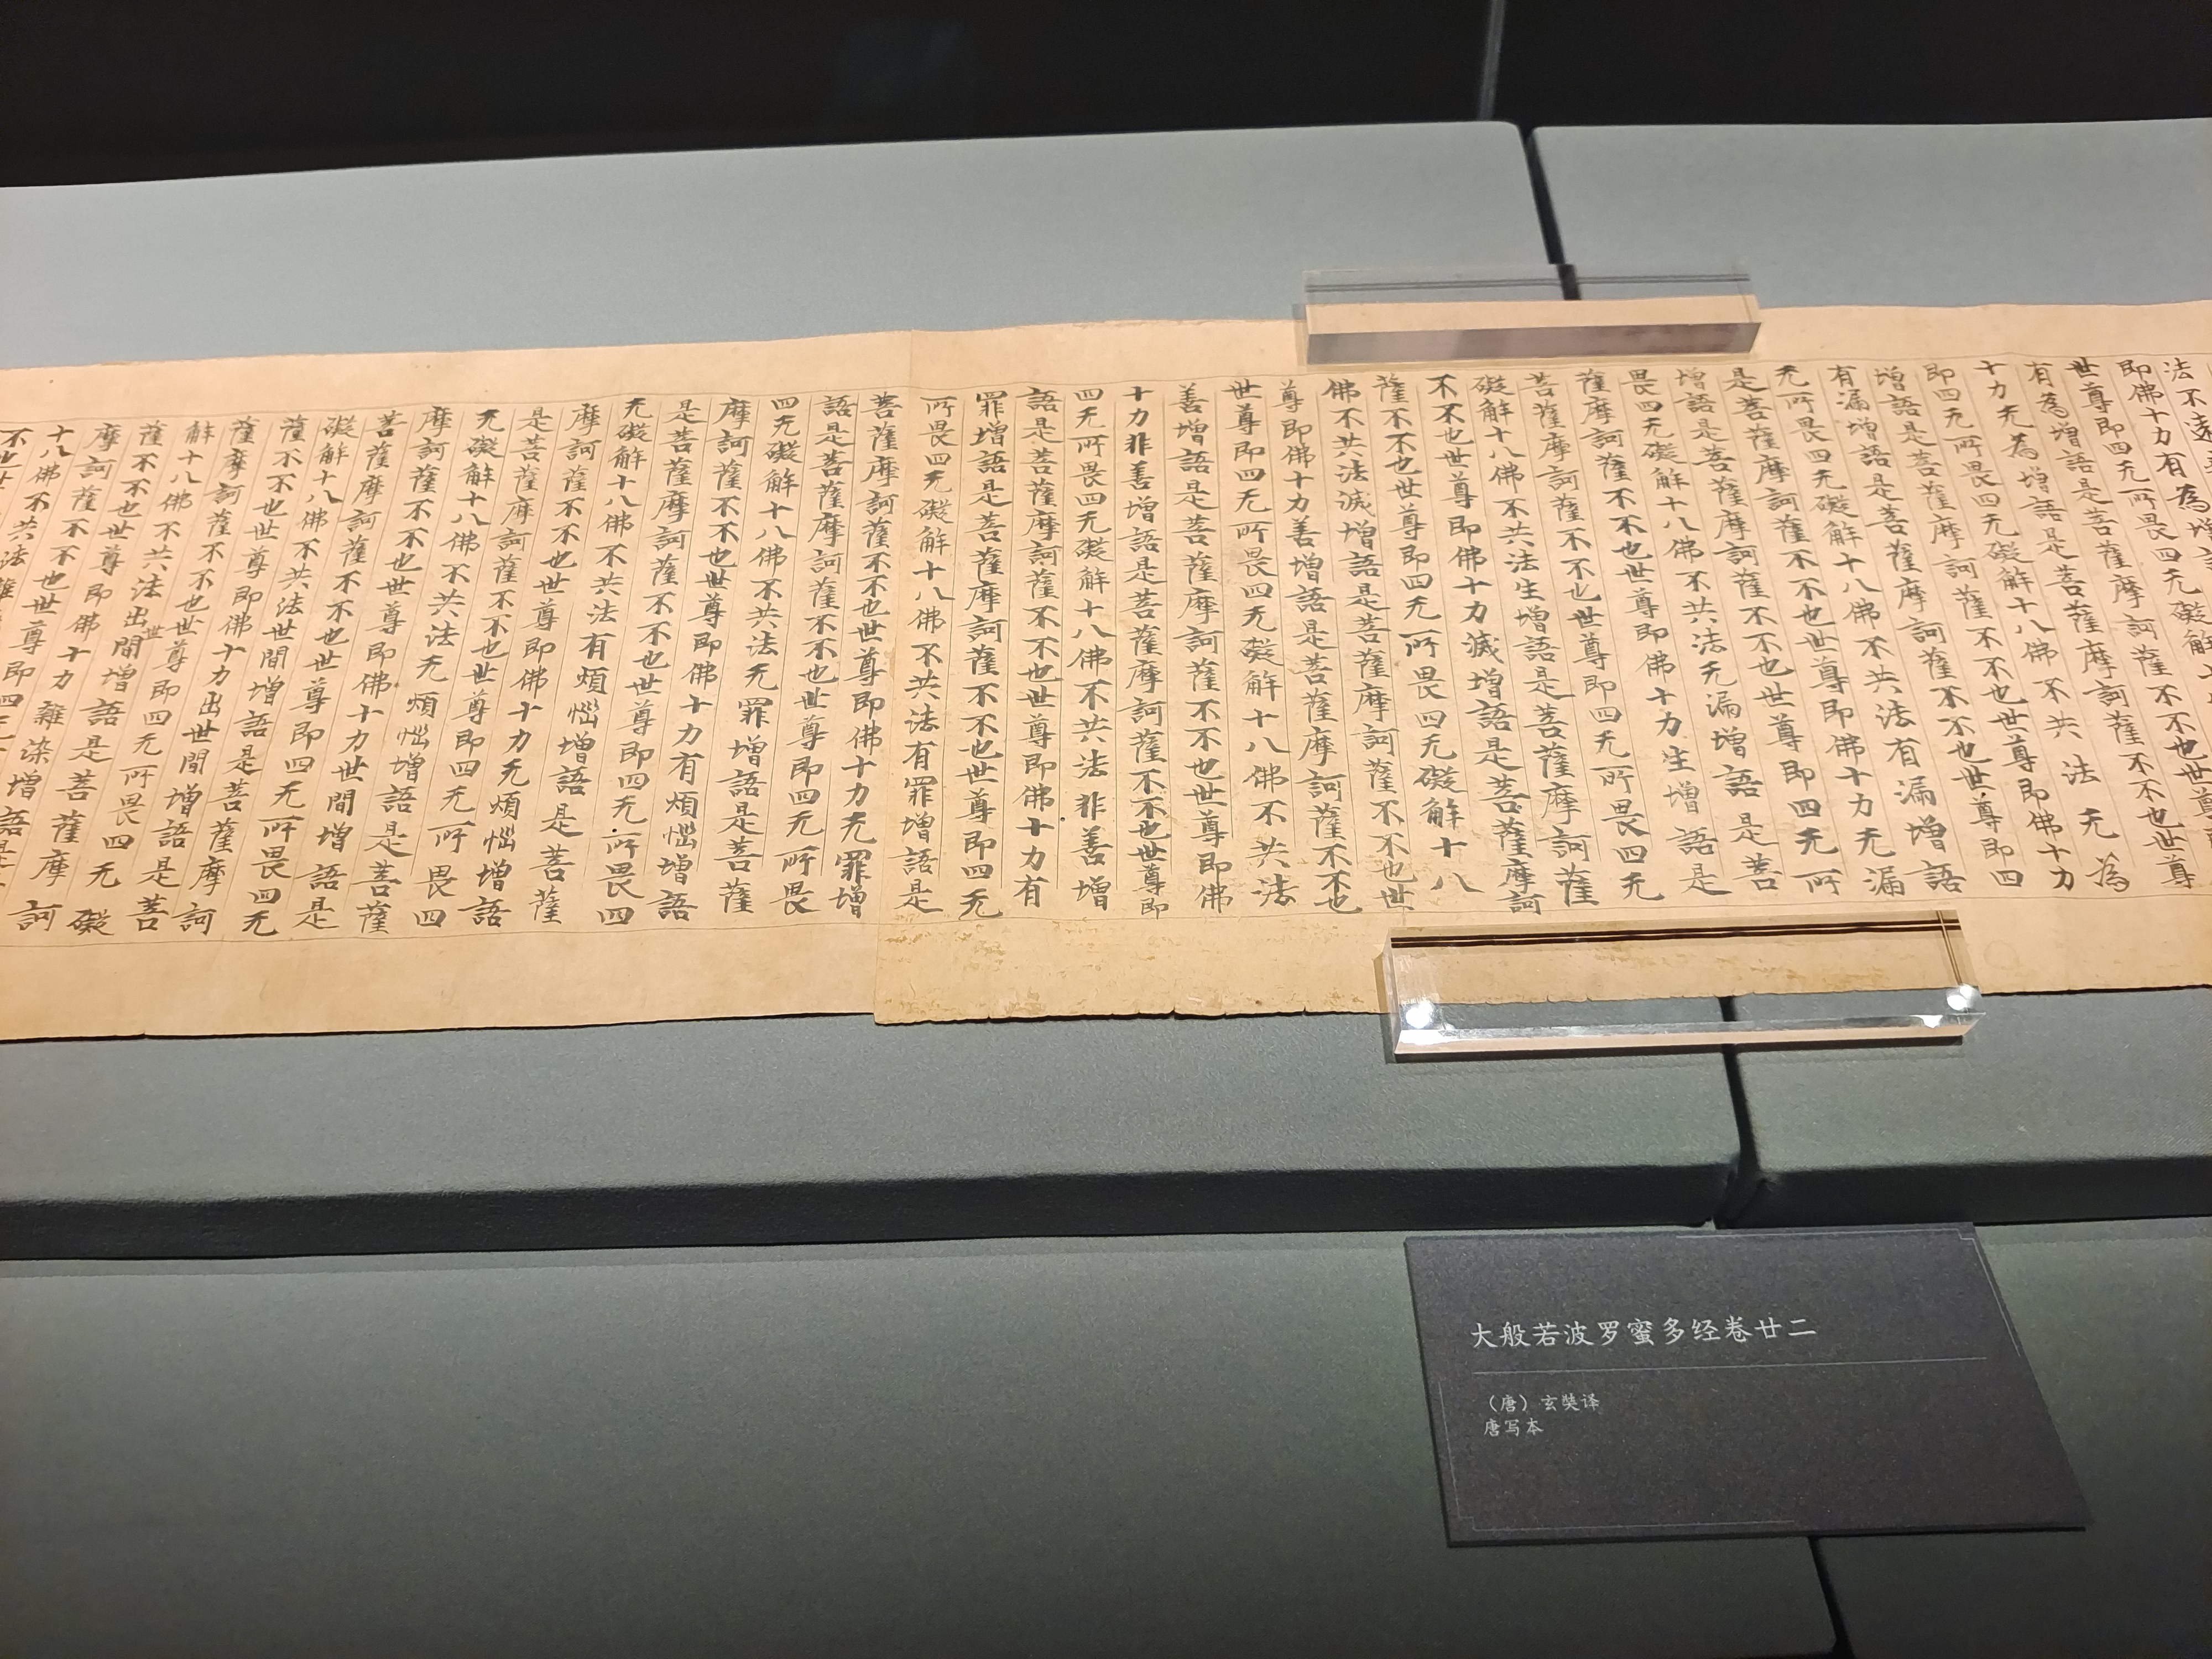 法不遠
即佛十力有為增
世尊即四无所畏四无礙解
有為增語是菩薩摩訶薩不不也世尊
十力无為增語是菩薩摩訶薩不不也世尊
即四无所畏四无礙解十八佛不共法无為
增語是菩薩摩訶薩不不也世尊即佛十力
有漏增語是菩薩摩訶薩不不也世尊即四
无所畏四无礙解十八佛不共法有漏增語
是菩薩摩訶薩不不也世尊即佛十力无漏
增語是菩薩摩訶薩不不也世尊即四无所
畏四无礙解十八佛不共法无漏增語是菩
薩摩訶薩不不也世尊即佛十力生增語是
菩薩摩訶薩不不也世尊即四无所畏四无
礙解十八佛不共法生增語是菩薩摩訶薩
不不也世尊即佛十力滅增語是菩薩摩訶
薩不不也世尊即四无所畏四无礙解十八
佛不共法滅增語是菩薩摩訶薩不不也世
尊即佛十力善增語是菩薩摩訶薩不不也
世尊即四无所畏四无礙解十八佛不共法
善增語是菩薩摩訶薩不不也世尊即佛
十力非善增語是菩薩摩訶薩不不也世尊即
四无所畏四无礙解十八佛不共法非善增
語是菩薩摩訶薩不不也世尊即佛十力有
罪增語是菩薩摩訶薩不不也世尊即四无
所畏四无礙解十八佛不共法有罪增語是
菩薩摩訶薩不不也世尊即佛十力无罪增
語是菩薩摩訶薩不不也世尊即四无所畏
四无礙解十八佛不共法无罪增語是菩薩
摩訶薩不不也世尊即佛十力有煩惱增語
是菩薩摩訶薩不不也世尊即四无所畏四
无礙解十八佛不共法有煩惱增語是菩薩
摩訶薩不不也世尊即佛十力无煩惱增語
是菩薩摩訶薩不不也世尊即四无所畏四
无礙解十八佛不共法无煩惱增語是菩薩
摩訶薩不不也世尊即佛十力世間增語是
菩薩摩訶薩不不也世尊即四无所畏四无
礙解十八佛不共法世間增語是菩薩摩訶
薩不不也世尊即佛十力出世間增語是菩
薩摩訶薩不不也世尊即四无所畏四无礙
解十八佛不共法出世間增語是菩薩摩訶
薩不不也世尊即佛十力雜染增語是
摩訶薩不不也世尊即四
十八佛不共法雜
不也世
大般若波罗蜜多经卷廿二
（唐）玄奘译
唐写本